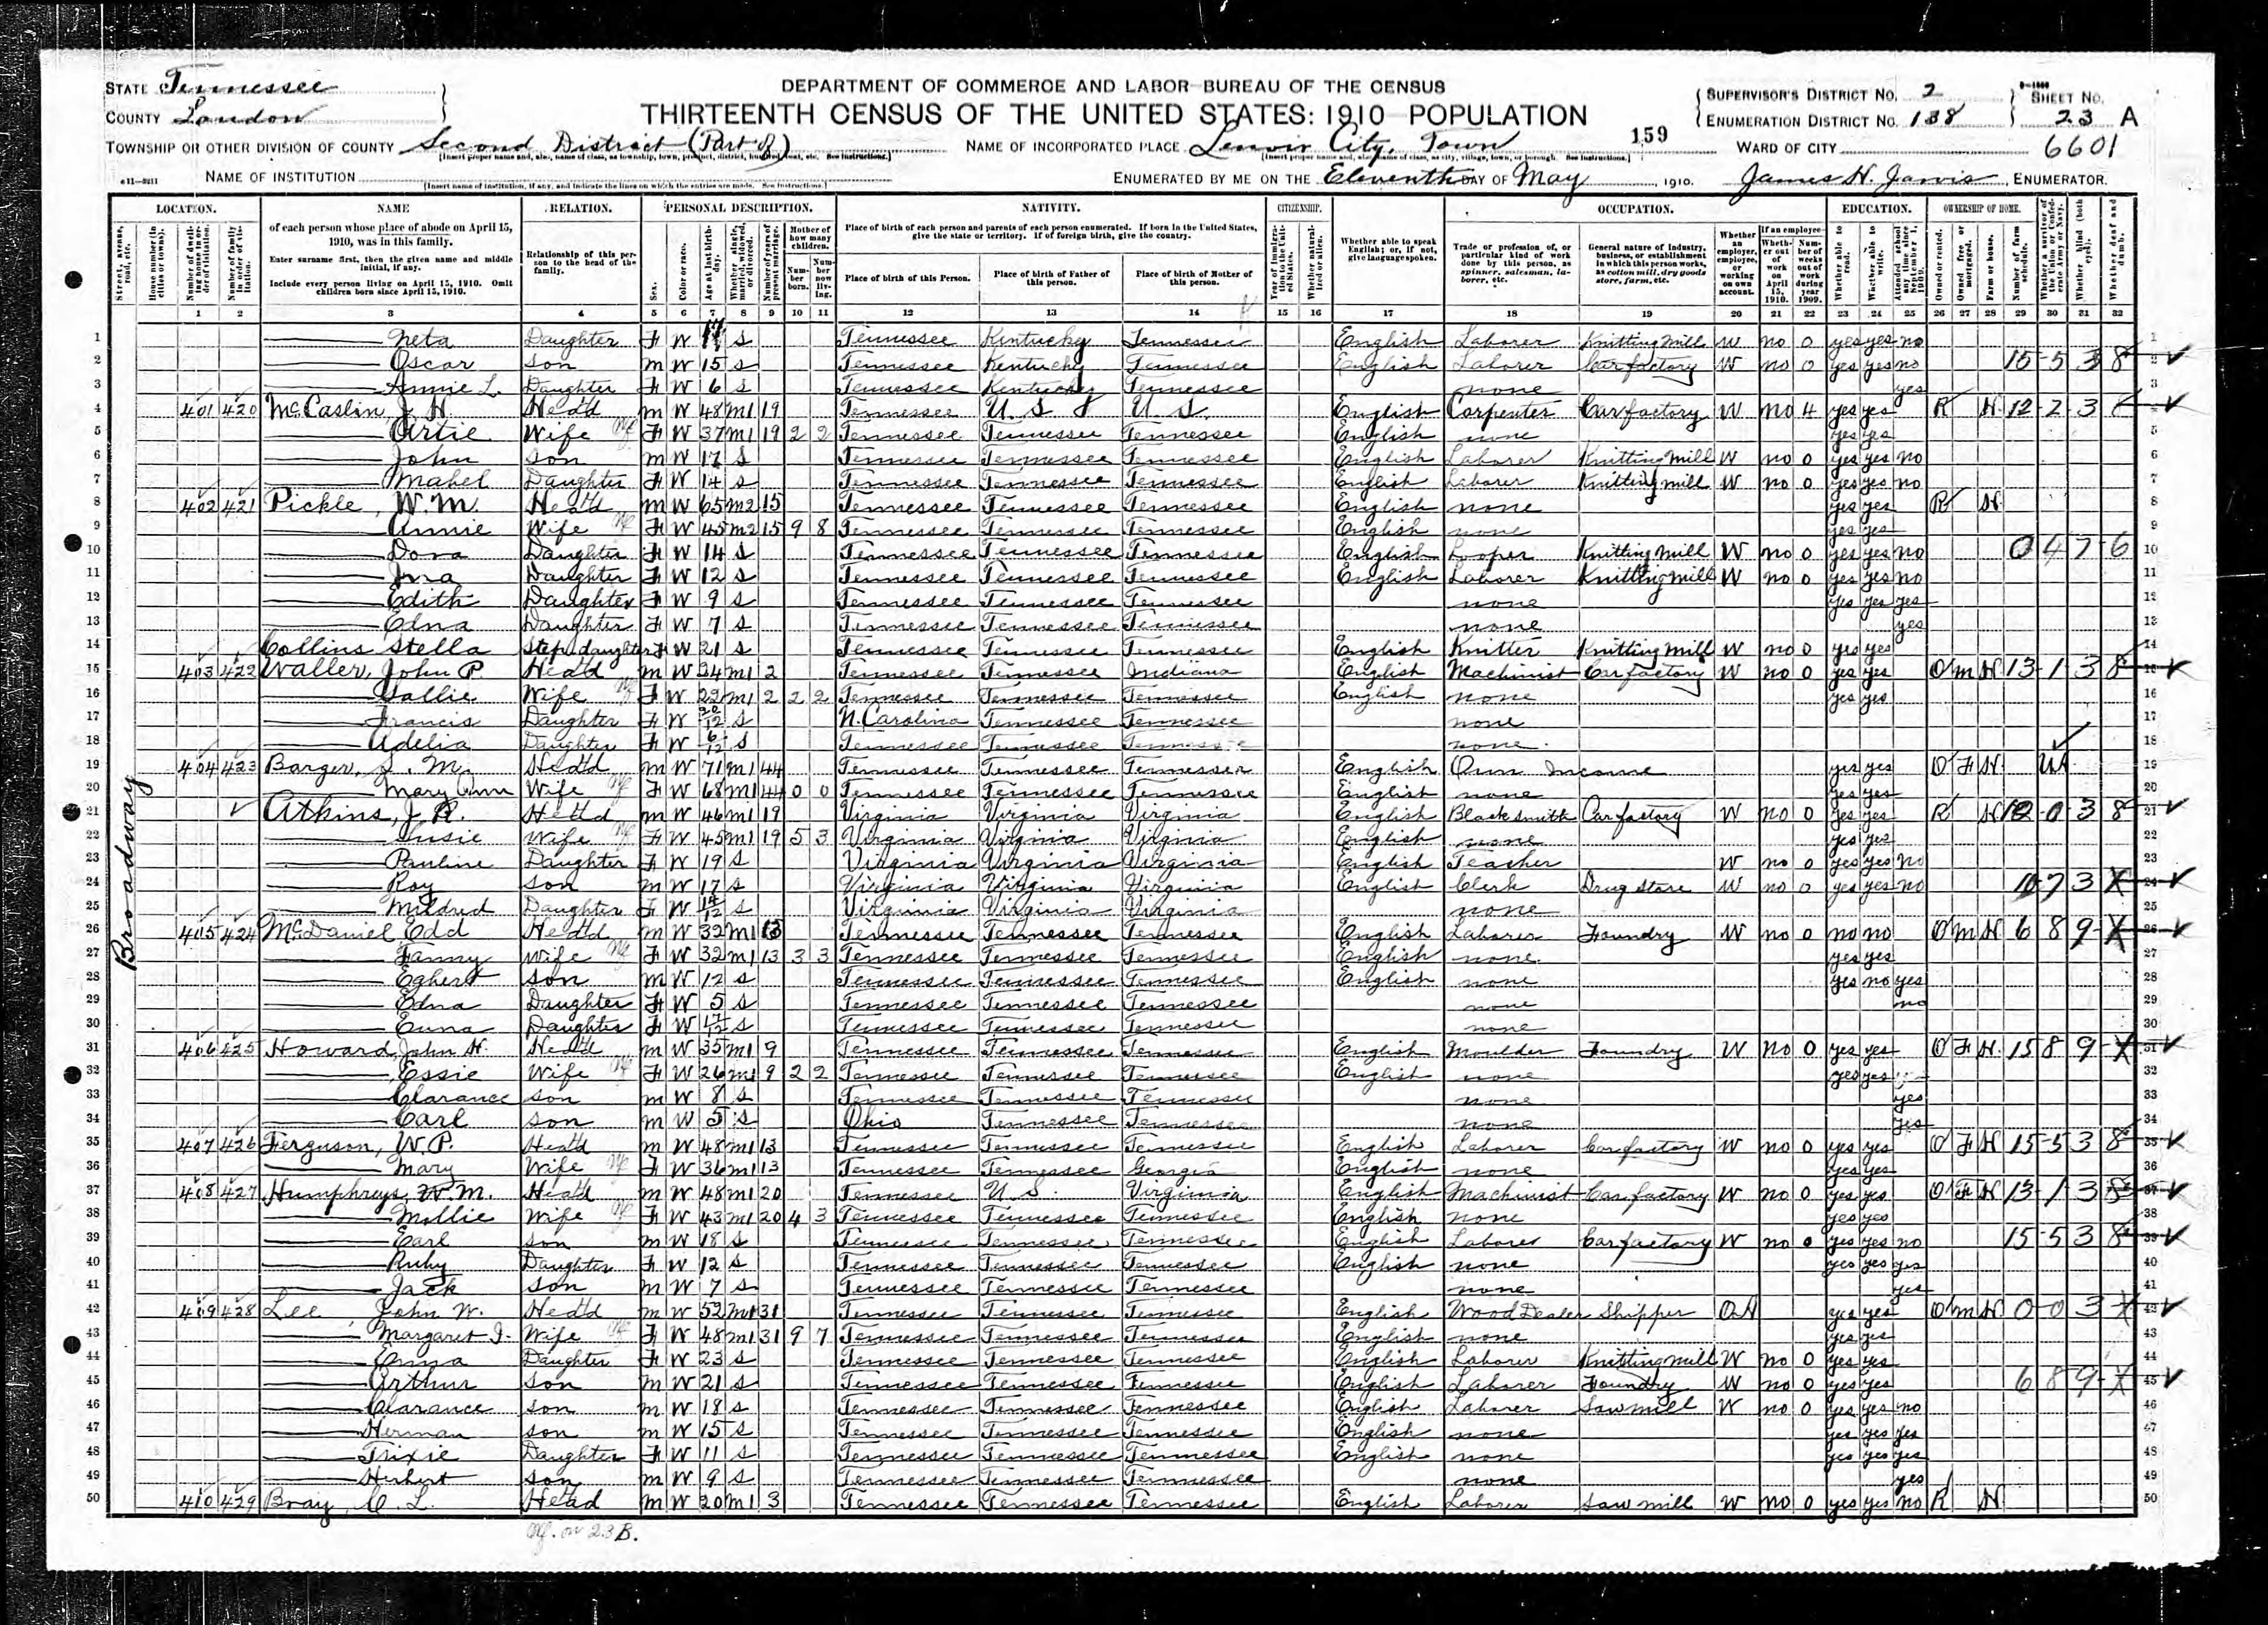 STATE Tennessee
COUNTY Loudon
DEPARTMENT OF COMMERCE AND LABOR-BUREAU OF THE CENSUS
THIRTEENTH CENSUS OF THE UNITED STATES: 1910 POPULATION
SUPERVISOR'S DISTRICT NO. 2
ENUMERATION DISTRICT NO. 138
SHEET NO. 23 A
6601
TOWNSHIP OR OTHER DIVISION OF COUNTY Second District (Part of)
NAME OF INCORPORATED PLACE Lenoir City, Town
159
WARD OF CITY
NAME OF INSTITUTION
ENUMERATED BY ME ON THE Eleventh DAY OF May, 1910. James H. Jarvis, ENUMERATOR.
LOCATION. NAME RELATION. PERSONAL DESCRIPTION. NATIVITY. CITIZENSHIP. OCCUPATION. EDUCATION. OWNERSHIP OF HOME.
of each person whose place of abode on April 15, 1910, was in this family.
Enter surname first, then the given name and middle initial, if any.
Include every person living on April 15, 1910. Omit children born since April 15, 1910.
Relationship of this person to the head of the family.
Place of birth of each person and parents of each person enumerated. If born in the United States, give the state or territory. If of foreign birth, give the country.
Place of birth of this Person. Place of birth of Father of this person. Place of birth of Mother of this person.
Whether able to speak English; or, if not, give language spoken.
Trade or profession of, or particular kind of work done by this person, as spinner, salesman, laborer, etc.
General nature of industry, business, or establishment in which this person works, as cotton mill, dry goods store, farm, etc.
1 2 3 4 5 6 7 8 9 10 11 12 13 14 15 16 17 18 19 20 21 22 23 24 25 26 27 28 29 30 31 32
Broadway
1 Neta Daughter F W S Tennessee Kentucky Tennessee English Laborer Knitting Mill W no 0 yes yes no
2 Oscar Son m W 15 S Tennessee Kentucky Tennessee English Laborer Car factory W no 0 yes yes no 15-5 3 8
3 Annie L. Daughter F W 6 S Tennessee Kentucky Tennessee none yes
4 401 420 McCaslin, J. H. Head m W 48 m1 19 Tennessee U S U S. English Carpenter Car factory W no 4 yes yes R H 12-2 3
5 Artie Wife F W 37 m1 19 2 2 Tennessee Tennessee Tennessee English none yes yes
6 John Son m W 17 S Tennessee Tennessee Tennessee English Laborer Knitting Mill W no 0 yes yes no
7 Mabel Daughter F W 14 S Tennessee Tennessee Tennessee English Laborer Knitting Mill W no 0 yes yes no
8 402 421 Pickle, W. M. Head m W 65 m2 15 Tennessee Tennessee Tennessee English none yes yes R H
9 Annie Wife F W 45 m2 15 9 8 Tennessee Tennessee Tennessee English none yes yes
10 Dora Daughter F W 14 S Tennessee Tennessee Tennessee English Looper Knitting Mill W no 0 yes yes no 0 4 7 6
11 Ina Daughter F W 12 S Tennessee Tennessee Tennessee English Laborer Knitting Mill W no 0 yes yes no
12 Edith Daughter F W 9 S Tennessee Tennessee Tennessee none yes yes yes
13 Edna Daughter F W 7 S Tennessee Tennessee Tennessee none yes
14 Collins Stella Step daughter F W 21 S Tennessee Tennessee Tennessee English Knitter Knitting Mill W no 0 yes yes
15 403 422 Waller, John P Head m W 34 m1 2 Tennessee Tennessee Indiana English Machinist Car factory W no 0 yes yes O m H 13-1 3 8
16 Hallie Wife F W 22 m1 2 2 2 Tennessee Tennessee Tennessee English none yes yes
17 Francis Daughter F W 20/12 S N. Carolina Tennessee Tennessee none
18 Adelia Daughter F W 6/12 S Tennessee Tennessee Tennessee none
19 404 423 Barger, J. M. Head m W 71 m1 44 Tennessee Tennessee Tennessee English Own Income yes yes O F H UA
20 Mary Ann Wife F W 68 m1 44 0 0 Tennessee Tennessee Tennessee English none yes yes
21 Atkins, J. R. Head m W 46 m1 19 Virginia Virginia Virginia English Blacksmith Car factory W no 0 yes yes R H 12-0 3 8
22 Susie Wife F W 45 m1 19 5 3 Virginia Virginia Virginia English none yes yes
23 Pauline Daughter F W 19 S Virginia Virginia Virginia English Teacher W no 0 yes yes no
24 Roy Son m W 17 S Virginia Virginia Virginia English Clerk Drug store W no 0 yes yes no 10 7 3 X
25 Mildred Daughter F W 14/12 S Virginia Virginia Virginia none
26 405 424 McDaniel Edd Head m W 32 m1 13 Tennessee Tennessee Tennessee English Laborer Foundry W no 0 no no O m H 6 8 9 X
27 Fanny Wife F W 32 m1 13 3 3 Tennessee Tennessee Tennessee English none yes yes
28 Egbert Son m W 12 S Tennessee Tennessee Tennessee English none yes no yes
29 Edna Daughter F W 5 S Tennessee Tennessee Tennessee none no
30 Euna Daughter F W 17/12 S Tennessee Tennessee Tennessee none
31 406 425 Howard, John H. Head m W 35 m1 9 Tennessee Tennessee Tennessee English Moulder Foundry W no 0 yes yes O F H 15 8 9 X
32 Essie Wife F W 26 m1 9 2 2 Tennessee Tennessee Tennessee English none yes yes
33 Clarance Son m W 8 S Tennessee Tennessee Tennessee none yes
34 Carl Son m W 5 S Ohio Tennessee Tennessee none yes
35 407 426 Ferguson, W. P. Head m W 48 m1 13 Tennessee Tennessee Tennessee English Laborer Car factory W no 0 yes yes O F H 15-5 3 8
36 Mary Wife F W 36 m1 13 Tennessee Tennessee Georgia English none yes yes
37 408 427 Humphreys, W. M. Head m W 48 m1 20 Tennessee U S. Virginia English Machinist Car factory W no 0 yes yes O F H 13-1 3 8
38 Mollie Wife F W 43 m1 20 4 3 Tennessee Tennessee Tennessee English none yes yes
39 Earl Son m W 18 S Tennessee Tennessee Tennessee English Laborer Car factory W no 0 yes yes no 15-5 3 8
40 Ruby Daughter F W 12 S Tennessee Tennessee Tennessee English none yes yes yes
41 Jack Son m W 7 S Tennessee Tennessee Tennessee none yes
42 409 428 Lee, John W. Head m W 52 m1 31 Tennessee Tennessee Tennessee English Wood Dealer Shipper OA yes yes O m H 0 0 3 X
43 Margaret J. Wife F W 48 m1 31 9 7 Tennessee Tennessee Tennessee English none yes yes
44 Emma Daughter F W 23 S Tennessee Tennessee Tennessee English Laborer Knitting mill W no 0 yes yes
45 Arthur Son m W 21 S Tennessee Tennessee Tennessee English Laborer Foundry W no 0 yes yes 6 8 9 X
46 Clarance Son m W 18 S Tennessee Tennessee Tennessee English Laborer Saw mill W no 0 yes yes no
47 Herman Son m W 15 S Tennessee Tennessee Tennessee English none yes yes yes
48 Trixie Daughter F W 11 S Tennessee Tennessee Tennessee English none yes yes yes
49 Herbert Son m W 9 S Tennessee Tennessee Tennessee none yes
50 410 429 Bray, C. L. Head m W 20 m1 3 Tennessee Tennessee Tennessee English Laborer Saw mill W no 0 yes yes no R H
Wf. on 23 B.